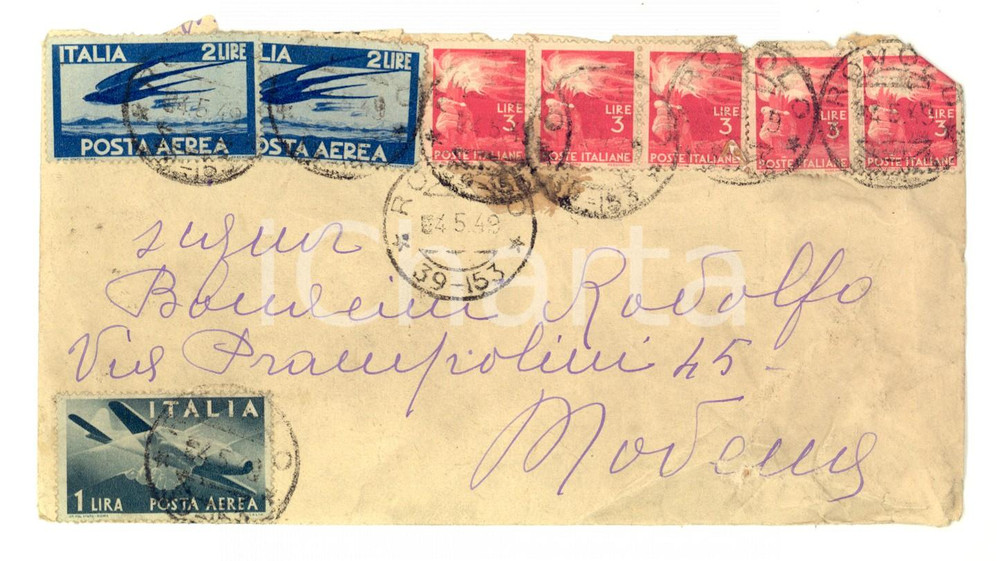 ITALIA 2 LIRE
POSTA AEREA
LIA 2 LIRE
POSTA AEREA
LIRE
3
POSTE ITALIANE
LIRE
3
POSTE ITALIANE
LIRE
3
POSTE ITALIANE
LIRE
3
POSTE ITALIANE
LIRE
3
POSTE ITALIANE
4.5.49
39-153
signor
Rodolfo
Via Prampolini 45-
Modena
iCharta
ITALIA
1 LIRA POSTA AEREA